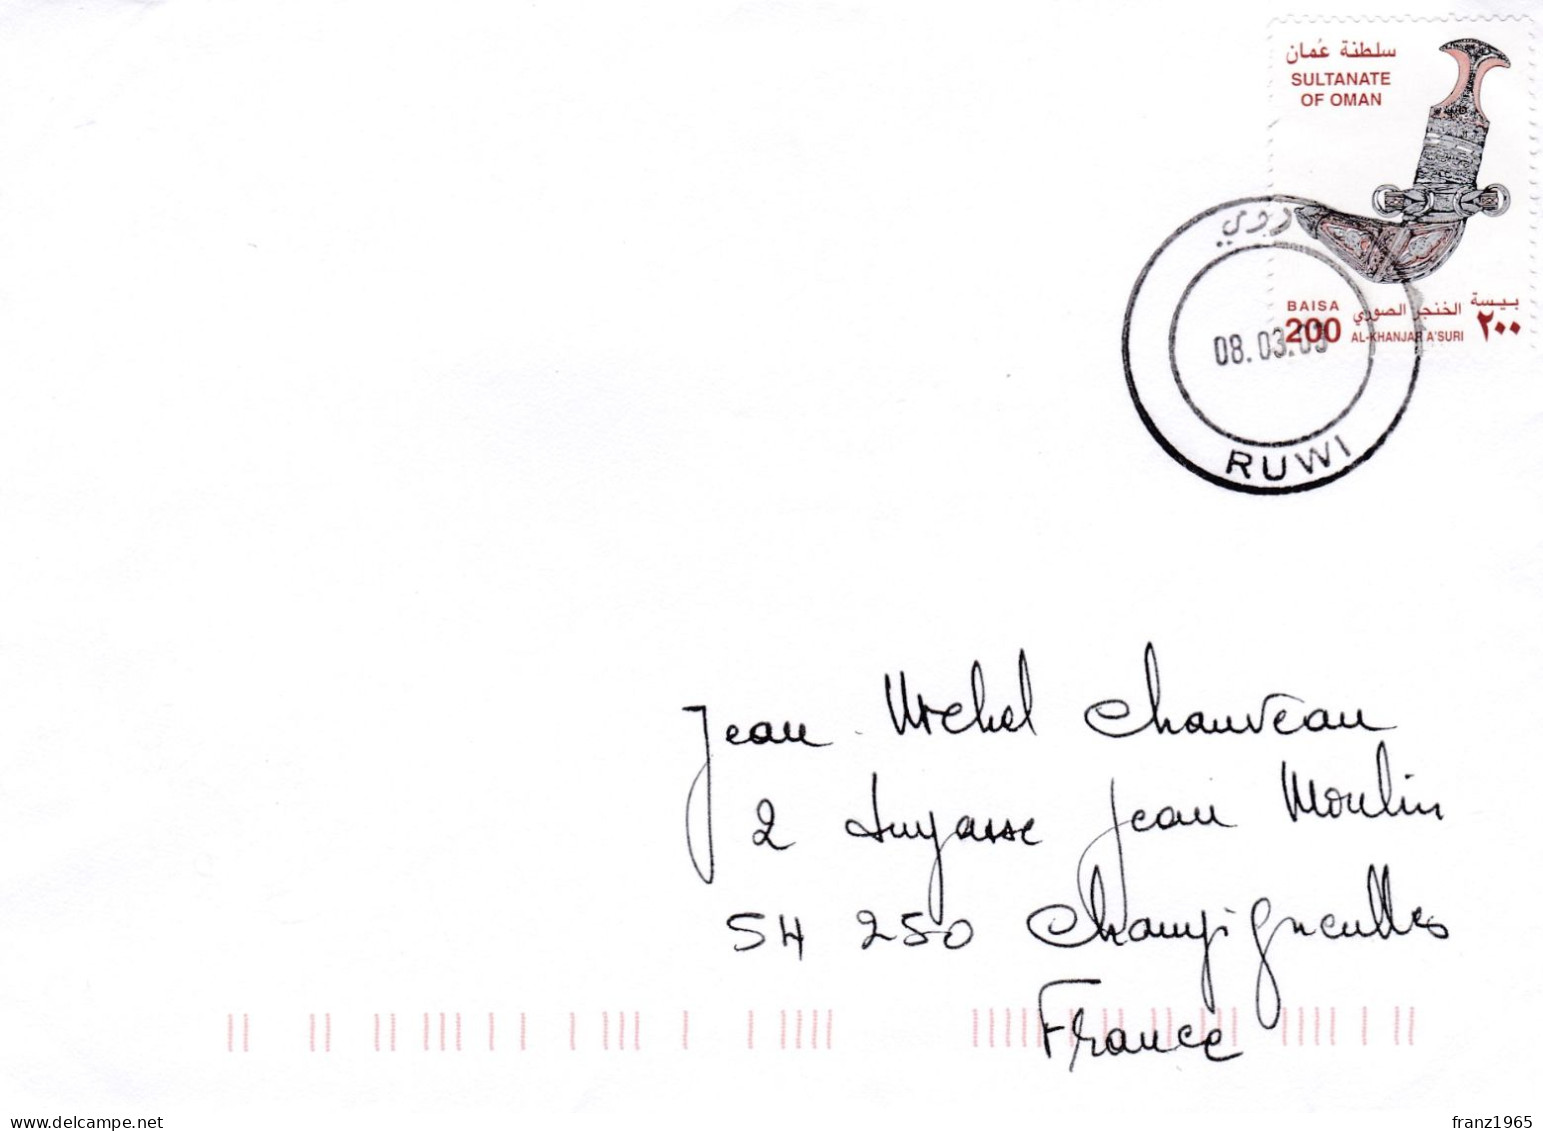 سلطنة عُمان
SULTANATE
OF OMAN
روي
BAISA
200
الخنجر الصوري
AL-KHANJAR A'SURI
بيسة
٢٠٠
08.03.03
RUWI
Jean Michel Chauveau
2 Impasse Jean Moulin
54 250 Champigneulles
France
franz1965
delcampe.net